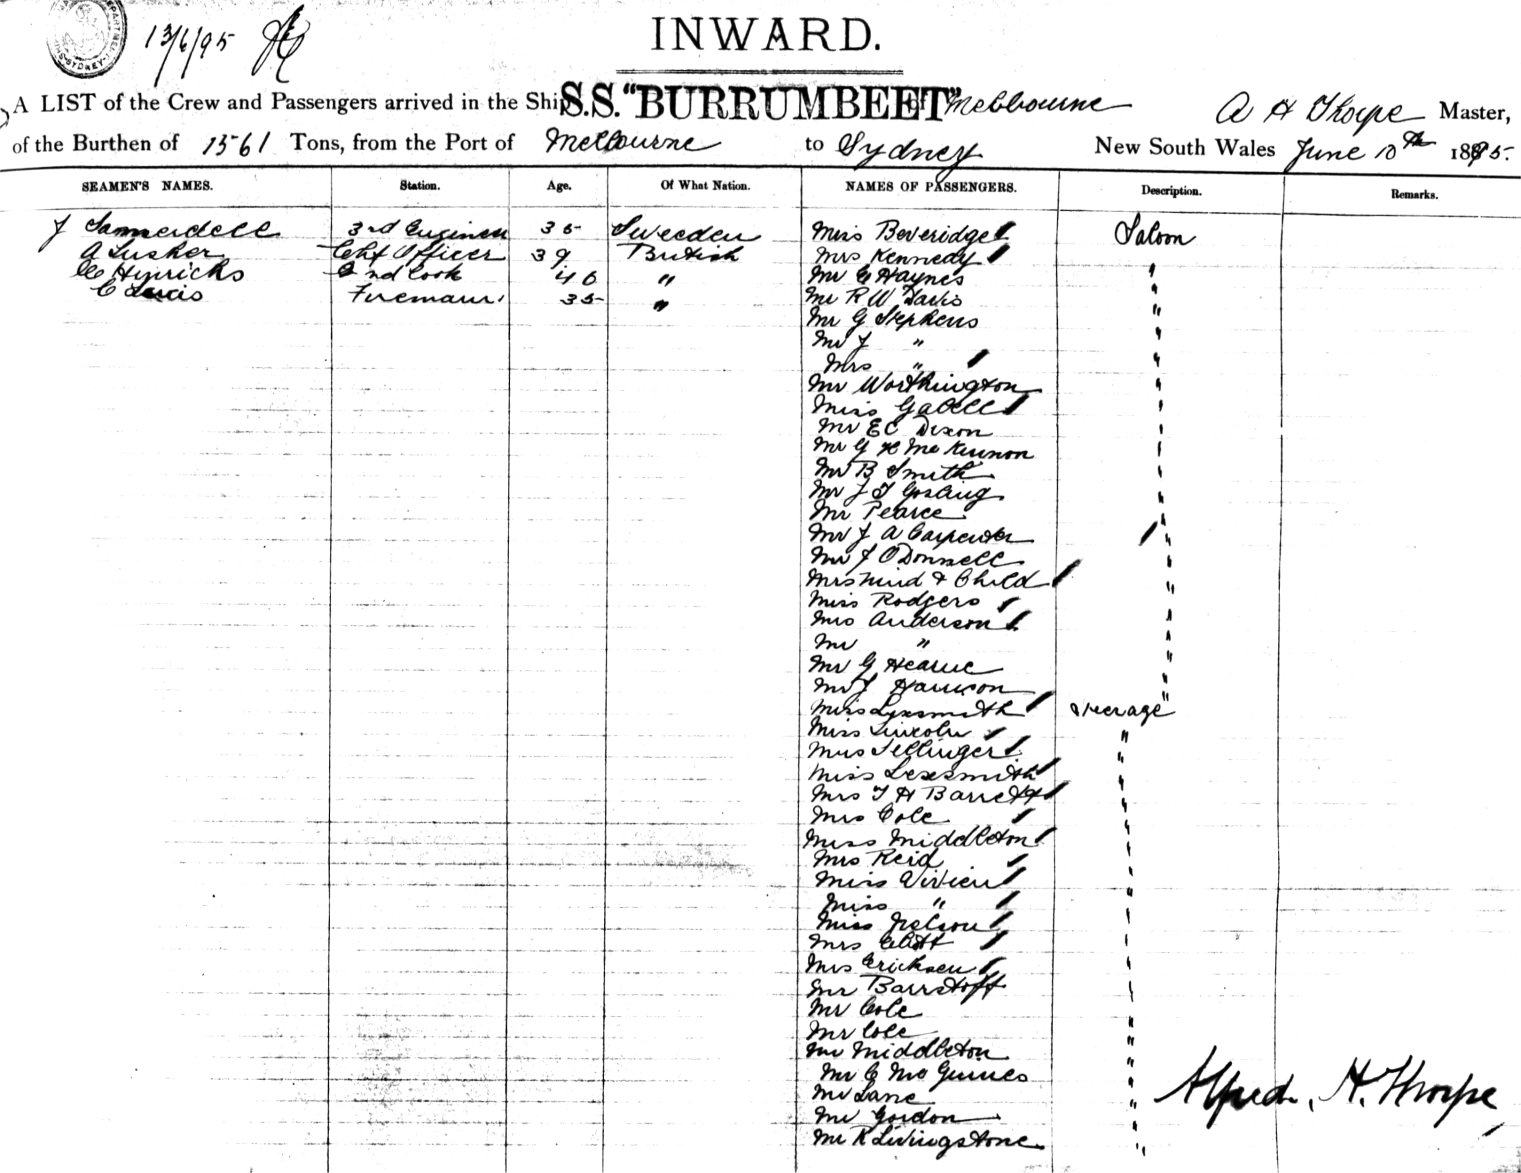 13/6/95
INWARD.
A LIST of the Crew and Passengers arrived in the Ship S.S. "BURRUMBEET" of Melbourne A H Thorpe Master,
of the Burthen of 1561 Tons, from the Port of Melbourne to Sydney New South Wales June 10th 1895.
SEAMEN'S NAMES. Station. Age. Of What Nation. NAMES OF PASSENGERS. Description. Remarks.
J Sannerdell 3rd Engineer 35 Sweeden Miss Beveridge Saloon
A Lusher Chf Officer 39 British Mrs Kennedy
Hinricks 2nd Cook 40 " Mr C Haynes "
C Lewis Fireman 35 " Mr R W Davis "
Mr G Stephens "
Mr J " "
Mrs " "
Mr Worthington "
Miss Gabell "
Mr E C Dixon "
Mr G H McKinnon "
Mr B Smith "
Mr J T Gosling "
Mr Pearce "
Mr J A Carpenter "
Mr J O'Donnell "
Mrs Mind & Child "
Miss Rodgers "
Mrs Anderson "
Mr " "
Mr G Hearne "
Mr J Harrison "
Miss Lyxsmith Steerage
Miss Lincoln "
Miss Sellinger "
Miss Lexsmith "
Mrs T H Barrett "
Mrs Cole "
Miss Middleton "
Mrs Reid "
Miss Vivien "
Miss " "
Miss Nelson "
Mrs Clott "
Mrs Ericksen "
Mr Barrstoff "
Mr Cole "
Mr Cole "
Mr Middleton "
Mr C McGuines "
Mr Lane "
Mr Gordon "
Mr R Livingstone "
Alfred. H. Thorpe